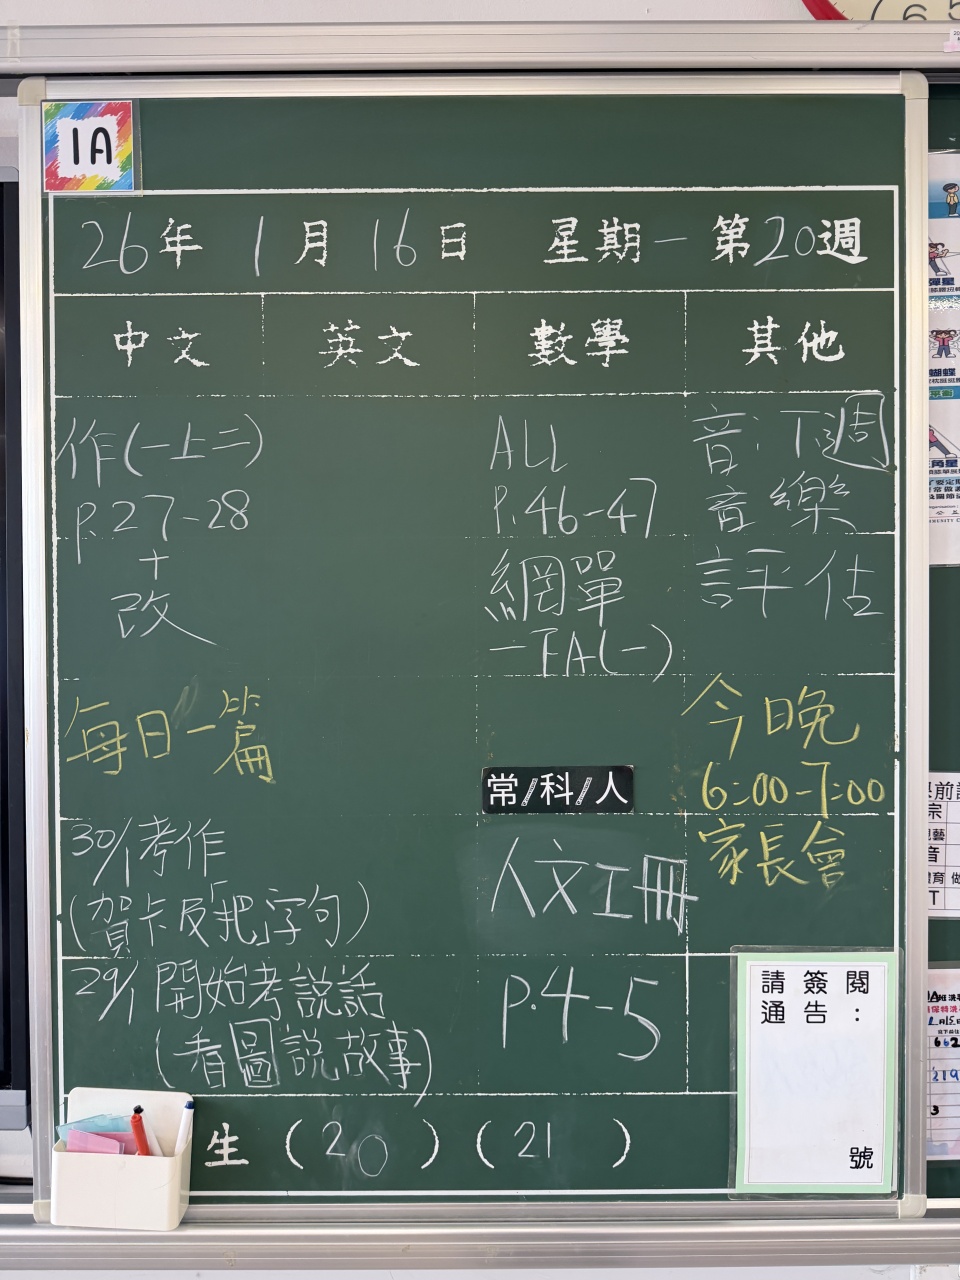 1A
26年 1月 16日 星期一 第20週
中文 英文 數學 其他
作(一上二)
p.27-28
+
改
每日一篇
30/1 考作
(賀卡及「把」字句)
29/1 開始考說話
(看圖說故事)
ALL
P.46-47
網單
一下A(一)
常/科/人
人文工冊
p.4-5
音:下週
音樂
評估
今晚
6:00-7:00
家長會
請簽閱
通告:
號
生 (20) (21)